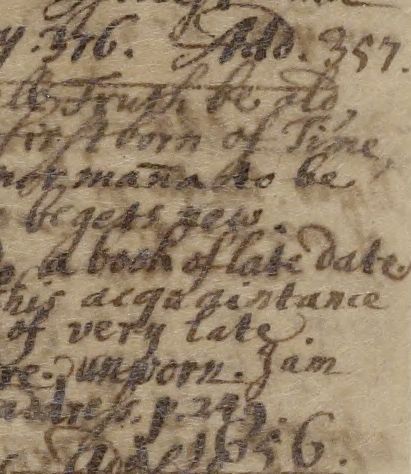 y. 376. Add. 357.
Truth be old,
first born of Time,
not manna to be
begets new.
a book of late date.
his acquaintance
of very late
re. unworn. Jam
address. p. 249.
1656.